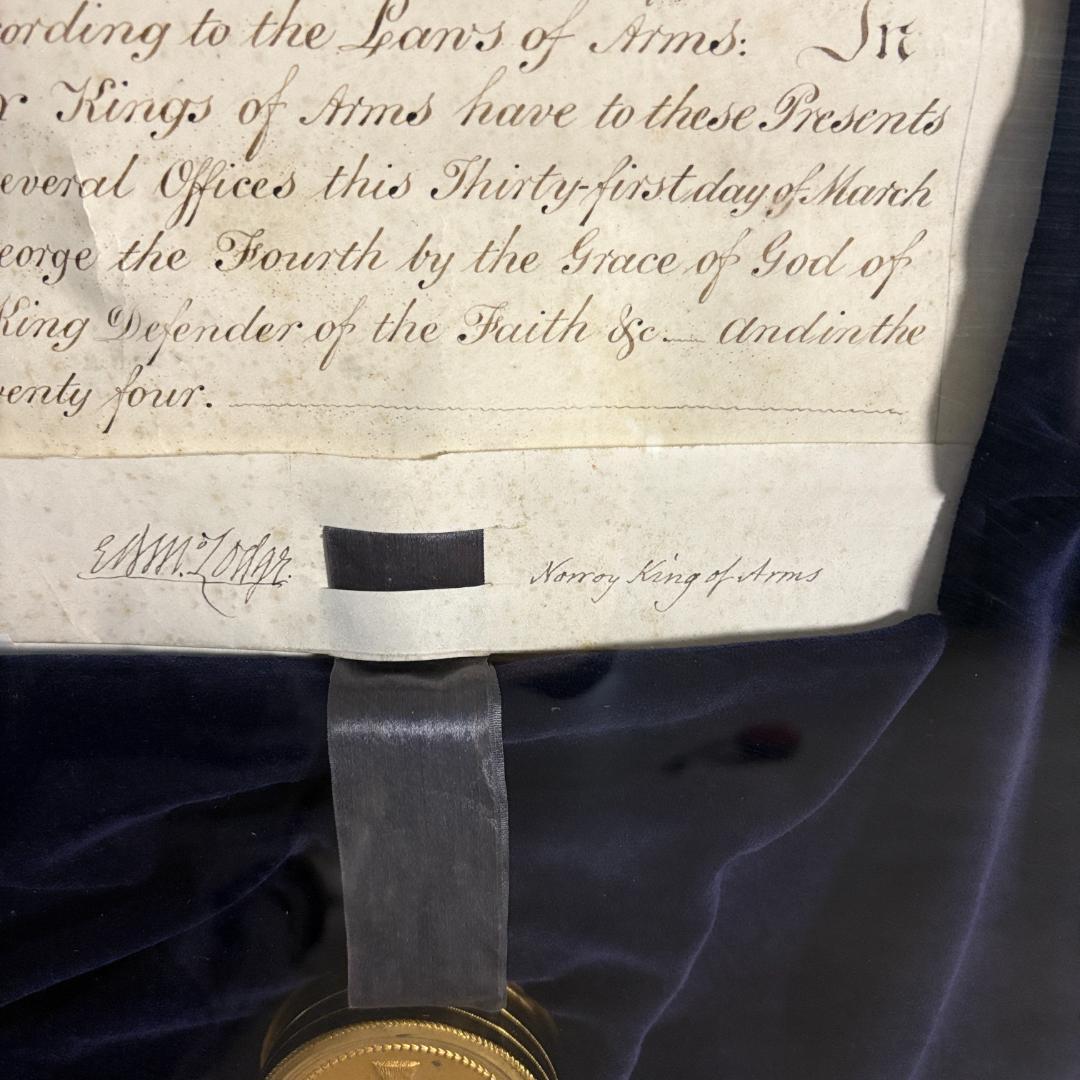 cording to the Laws of Arms: In
r Kings of Arms have to these Presents
everal Offices this Thirty-first day of March
eorge the Fourth by the Grace of God of
King Defender of the Faith &c. And in the
wenty four.
Edm.d Lodge. Norroy King of Arms